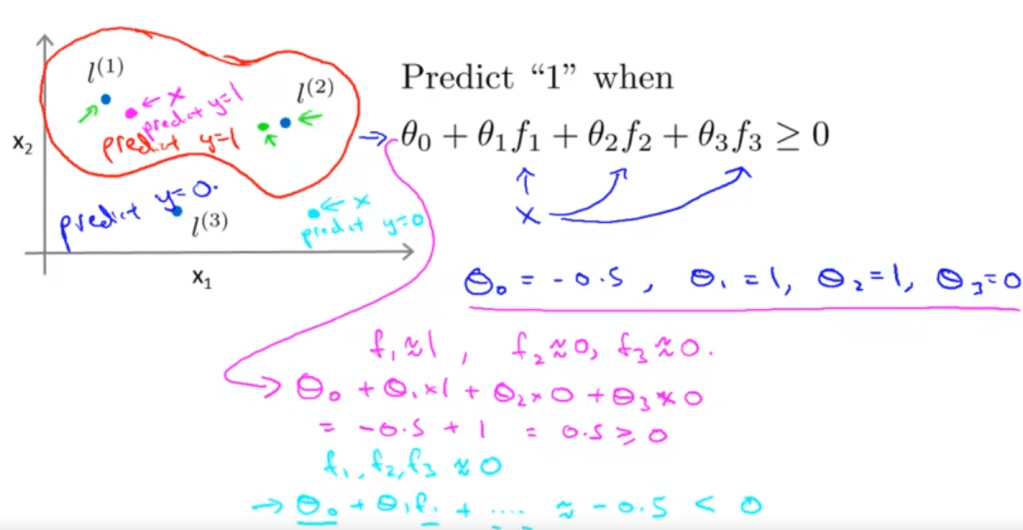 l^{(1)}
← x
predict y=1
l^{(2)}
predict y=1
x₂
predict y=0.
l^{(3)}
← x
predict y=0
x₁
Predict “1” when
→ θ₀ + θ₁f₁ + θ₂f₂ + θ₃f₃ ≥ 0
x
θ₀ = -0.5 , θ₁ = 1, θ₂=1, θ₃=0
f₁≈1 , f₂≈0, f₃≈0.
→ θ₀ + θ₁×1 + θ₂×0 + θ₃×0
= -0.5 + 1 = 0.5 ≥ 0
f₁, f₂, f₃ ≈ 0
→ θ₀ + θ₁f₁ + .... ≈ -0.5 < 0